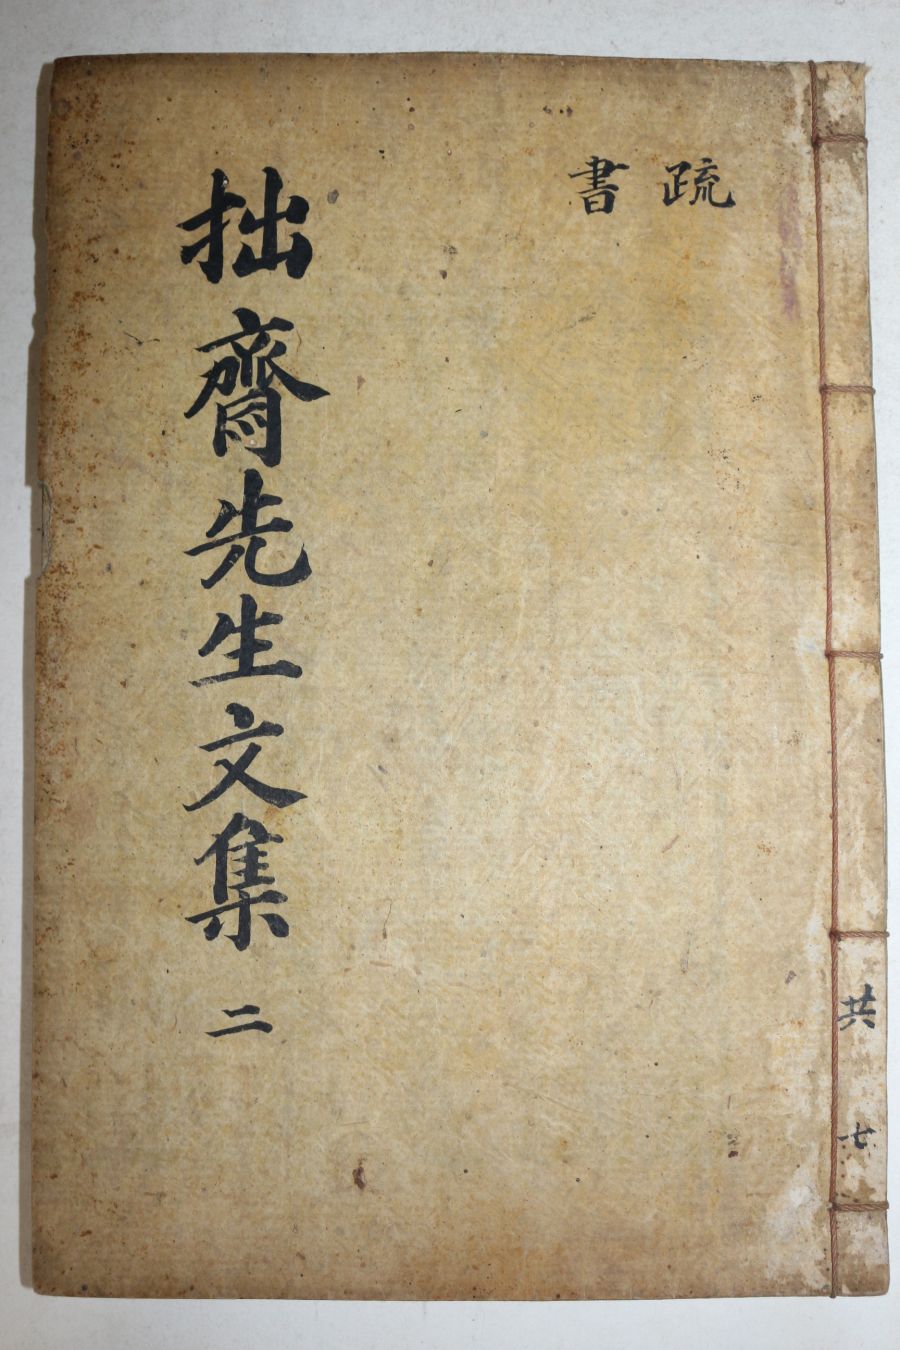 共七
疏
書
拙齋先生文集 二